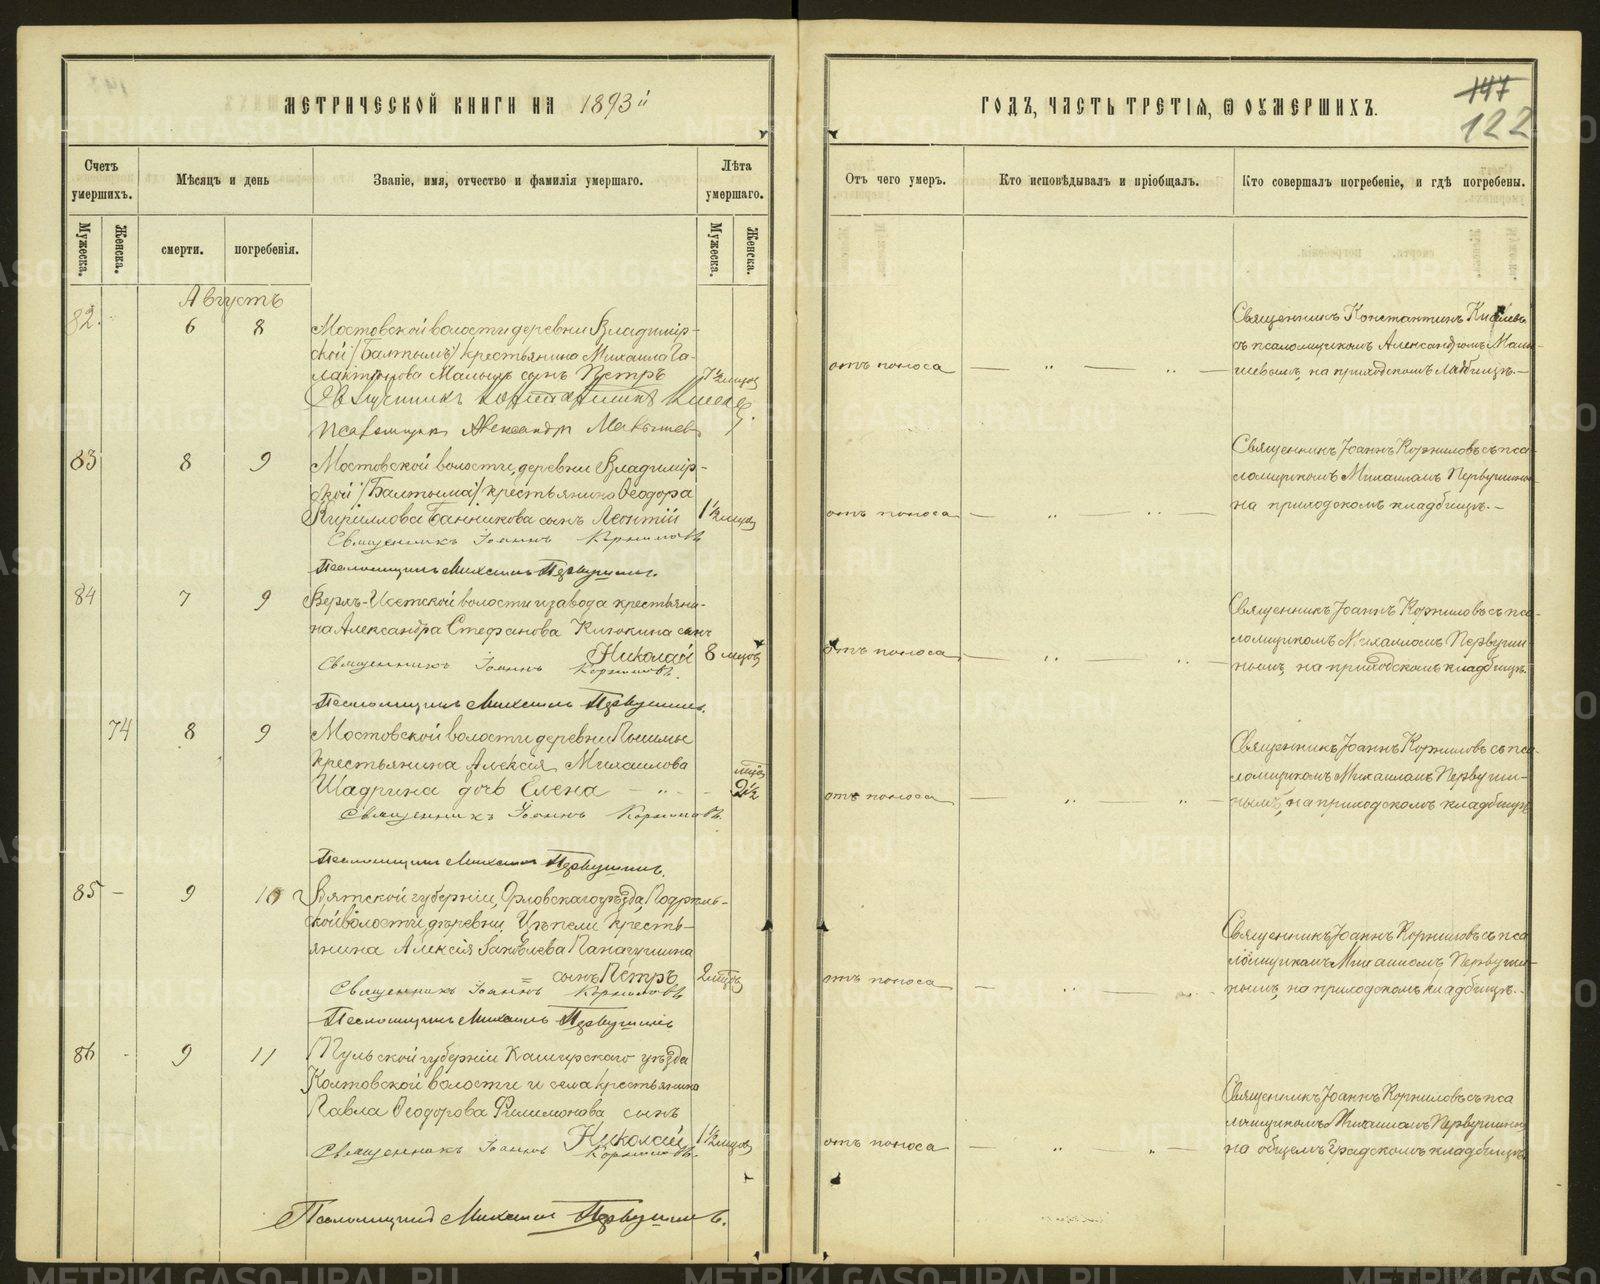 МЕТРИЧЕСКОЙ КНИГИ НА 1893й
ГОДЪ, ЧАСТЬ ТРЕТІЯ, Ѿ ОУМЕРШИХЪ.
147
122
Счетъ умершихъ.
Мѣсяцъ и день
Званіе, имя, отчество и фамилія умершаго.
Лѣта умершаго.
Отъ чего умеръ.
Кто исповѣдывалъ и пріобщалъ.
Кто совершалъ погребеніе, и гдѣ погребены.
Мужеска.
Женска.
смерти.
погребенія.
Мужеска.
Женска.
Августъ
82.
6
8
Мостовской волости деревни Владимір-
ской /Балтымъ/ крестьянина Михаила Га-
лактіонова Малыхъ сынъ Петръ
7½ мцов
Священникъ Константинъ
Псаломщик Александр Малышев
отъ поноса
Священникъ Константинъ
съ псаломщикомъ Александромъ Малы-
шевымъ, на приходскомъ кладбищѣ.—
83
8
9
Мостовской волости, деревни Владимір-
ской /Балтыма/ крестьянина Ѳеодора
Кириллова Банникова сынъ Леонтій
1½ мцов
Священникъ Іоаннъ Корниловъ
Псаломщикъ Михаилъ Первушинъ.
отъ поноса
Священникъ Іоаннъ Корниловъ съ пса-
ломщикомъ Михаиломъ Первушинымъ
на приходскомъ кладбищѣ.—
84
7
9
Верхъ-Исетской волости и завода крестьяни-
на Александра Стефанова сынъ
Николай
8 мцовъ
Священникъ Іоаннъ Корниловъ.
Псаломщикъ Михаилъ Первушинъ.
отъ поноса
Священникъ Іоаннъ Корниловъ съ пса-
ломщикомъ Михаиломъ Первуши-
нымъ, на приходскомъ кладбищѣ.
74
8
9
Мостовской волости деревни Пышмы
крестьянина Алексія Михаилова
Шадрина дочь Елена
мцов
2½
Священникъ Іоаннъ Корниловъ.
Псаломщикъ Михаилъ Первушинъ.
отъ поноса
Священникъ Іоаннъ Корниловъ съ пса-
ломщикомъ Михаиломъ Первуши-
нымъ, на приходскомъ кладбищѣ
85
9
10
Вятской губерніи, Орловскаго уѣзда,
волости, деревни крестья-
янина Алексія Іаковлева
сынъ Петръ
2 мцовъ
Священникъ Іоаннъ Корниловъ
Псаломщикъ Михаилъ Первушинъ
отъ поноса
Священникъ Іоаннъ Корниловъ съ пса
ломщикомъ Михаиломъ Первуши-
нымъ, на приходскомъ кладбищѣ.—
86
9
11
Тульской губерніи Каширскаго уѣзда
Колтовской волости и села крестьянина
Павла Ѳеодорова Филимонова сынъ
Николай
1½ мцов
Священникъ Іоаннъ Корниловъ.
Псаломщикъ Михаилъ Первушинъ.
отъ поноса
Священникъ Іоаннъ Корниловъ съ пса
ломщикомъ Михаиломъ Первушинымъ
на общемъ градскомъ кладбищѣ.
METRIKI.GASO-URAL.RU